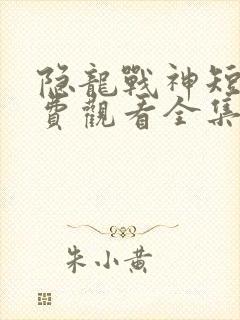 隐龍戰神短
費觀看全集
朱小黄